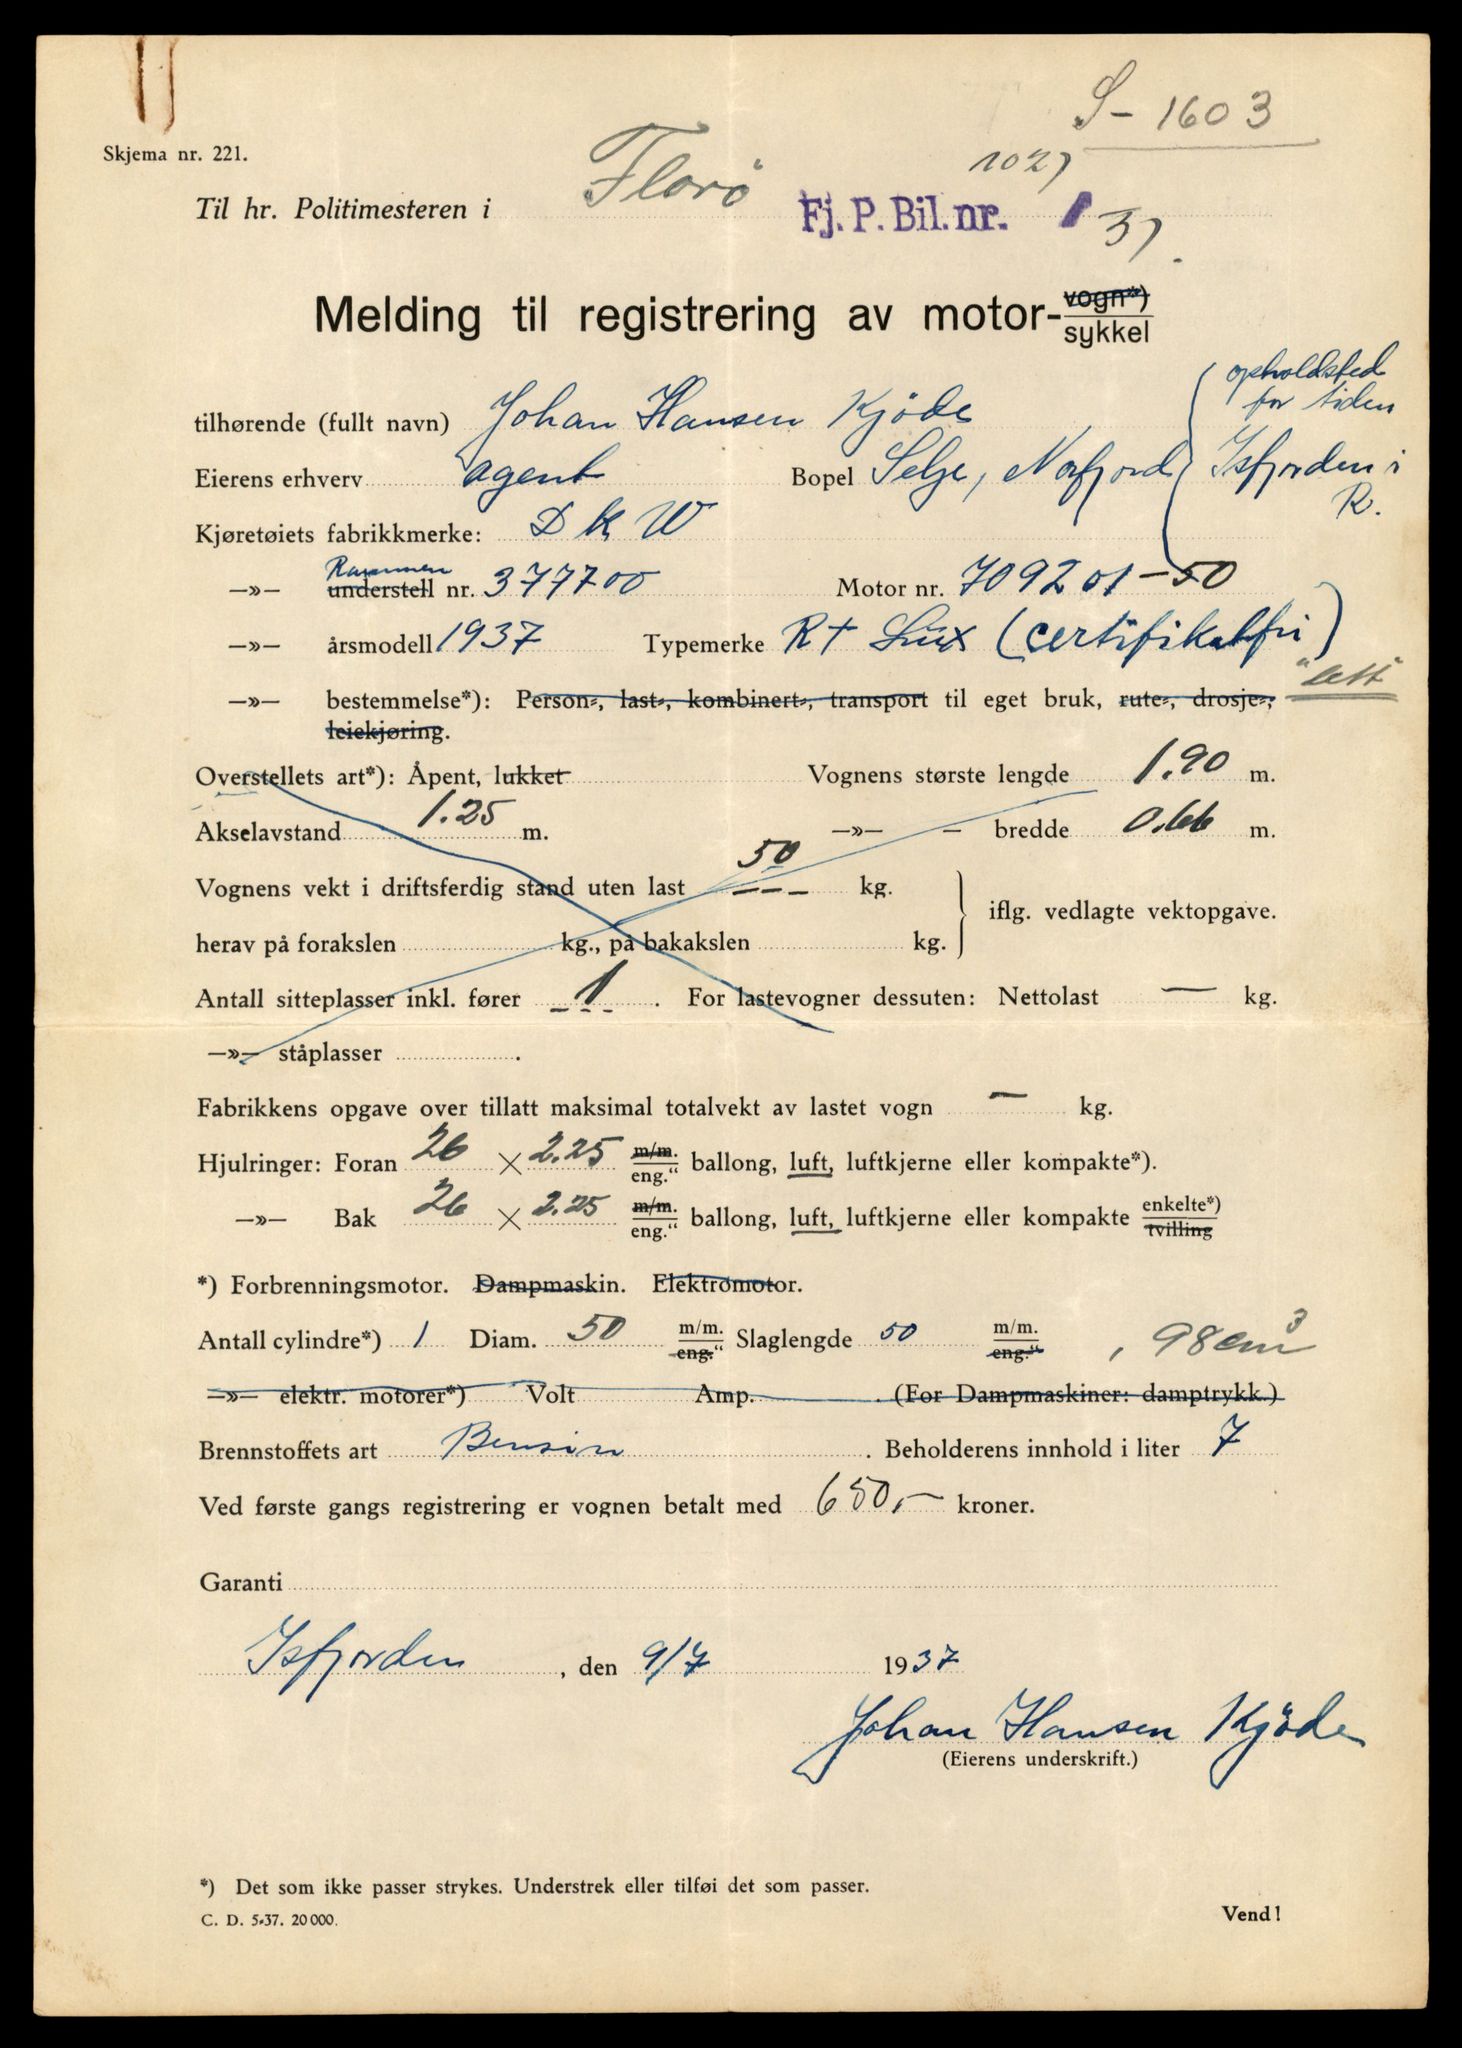 S-1603
Skjema nr. 221.
1027
Til hr. Politimesteren i Florö Fj. P. Bil. nr. 37.
Melding til registrering av motor-vogn*)
sykkel
opholdsted
for tiden
tilhørende (fullt navn) Johan Hansen Kjöde
Eierens erhverv agent Bopel Selje, Norfjord Isfjorden i
R.
Kjøretøiets fabrikkmerke: D K W
Rammen
—»— understell nr. 377700 Motor nr. 709201-50
—»— årsmodell 1937 Typemerke R+ Lux (certifikatfri)
"lett"
—»— bestemmelse*): Person-, last-, kombinert-, transport til eget bruk, rute-, drosje-,
leiekjøring.
Overstellets art*): Åpent, lukket Vognens største lengde 1.90 m.
Akselavstand 1.25 m. —»— — bredde 0.66 m.
50
Vognens vekt i driftsferdig stand uten last --- kg.
iflg. vedlagte vektopgave.
herav på forakslen kg., på bakakslen kg.
Antall sitteplasser inkl. fører 1. For lastevogner dessuten: Nettolast — kg.
—»— ståplasser .
Fabrikkens opgave over tillatt maksimal totalvekt av lastet vogn — kg.
Hjulringer: Foran 26 × 2.25 m/m. eng.“ ballong, luft, luftkjerne eller kompakte*).
—»— Bak 26 × 2.25 m/m. eng.“ ballong, luft, luftkjerne eller kompakte enkelte*) tvilling
*) Forbrenningsmotor. Dampmaskin. Elektromotor.
Antall cylindre*) 1 Diam. 50 m/m. eng.“ Slaglengde 50 m/m. eng.“ , 98 cm3
—»— elektr. motorer*) Volt Amp. . (For Dampmaskiner: damptrykk.)
Brennstoffets art Bensin . Beholderens innhold i liter 7
Ved første gangs registrering er vognen betalt med 650,- kroner.
Garanti
Isfjorden , den 9/7 1937
Johan Hansen Kjöde
(Eierens underskrift.)
*) Det som ikke passer strykes. Understrek eller tilføi det som passer.
C. D. 5-37. 20 000.
Vend!